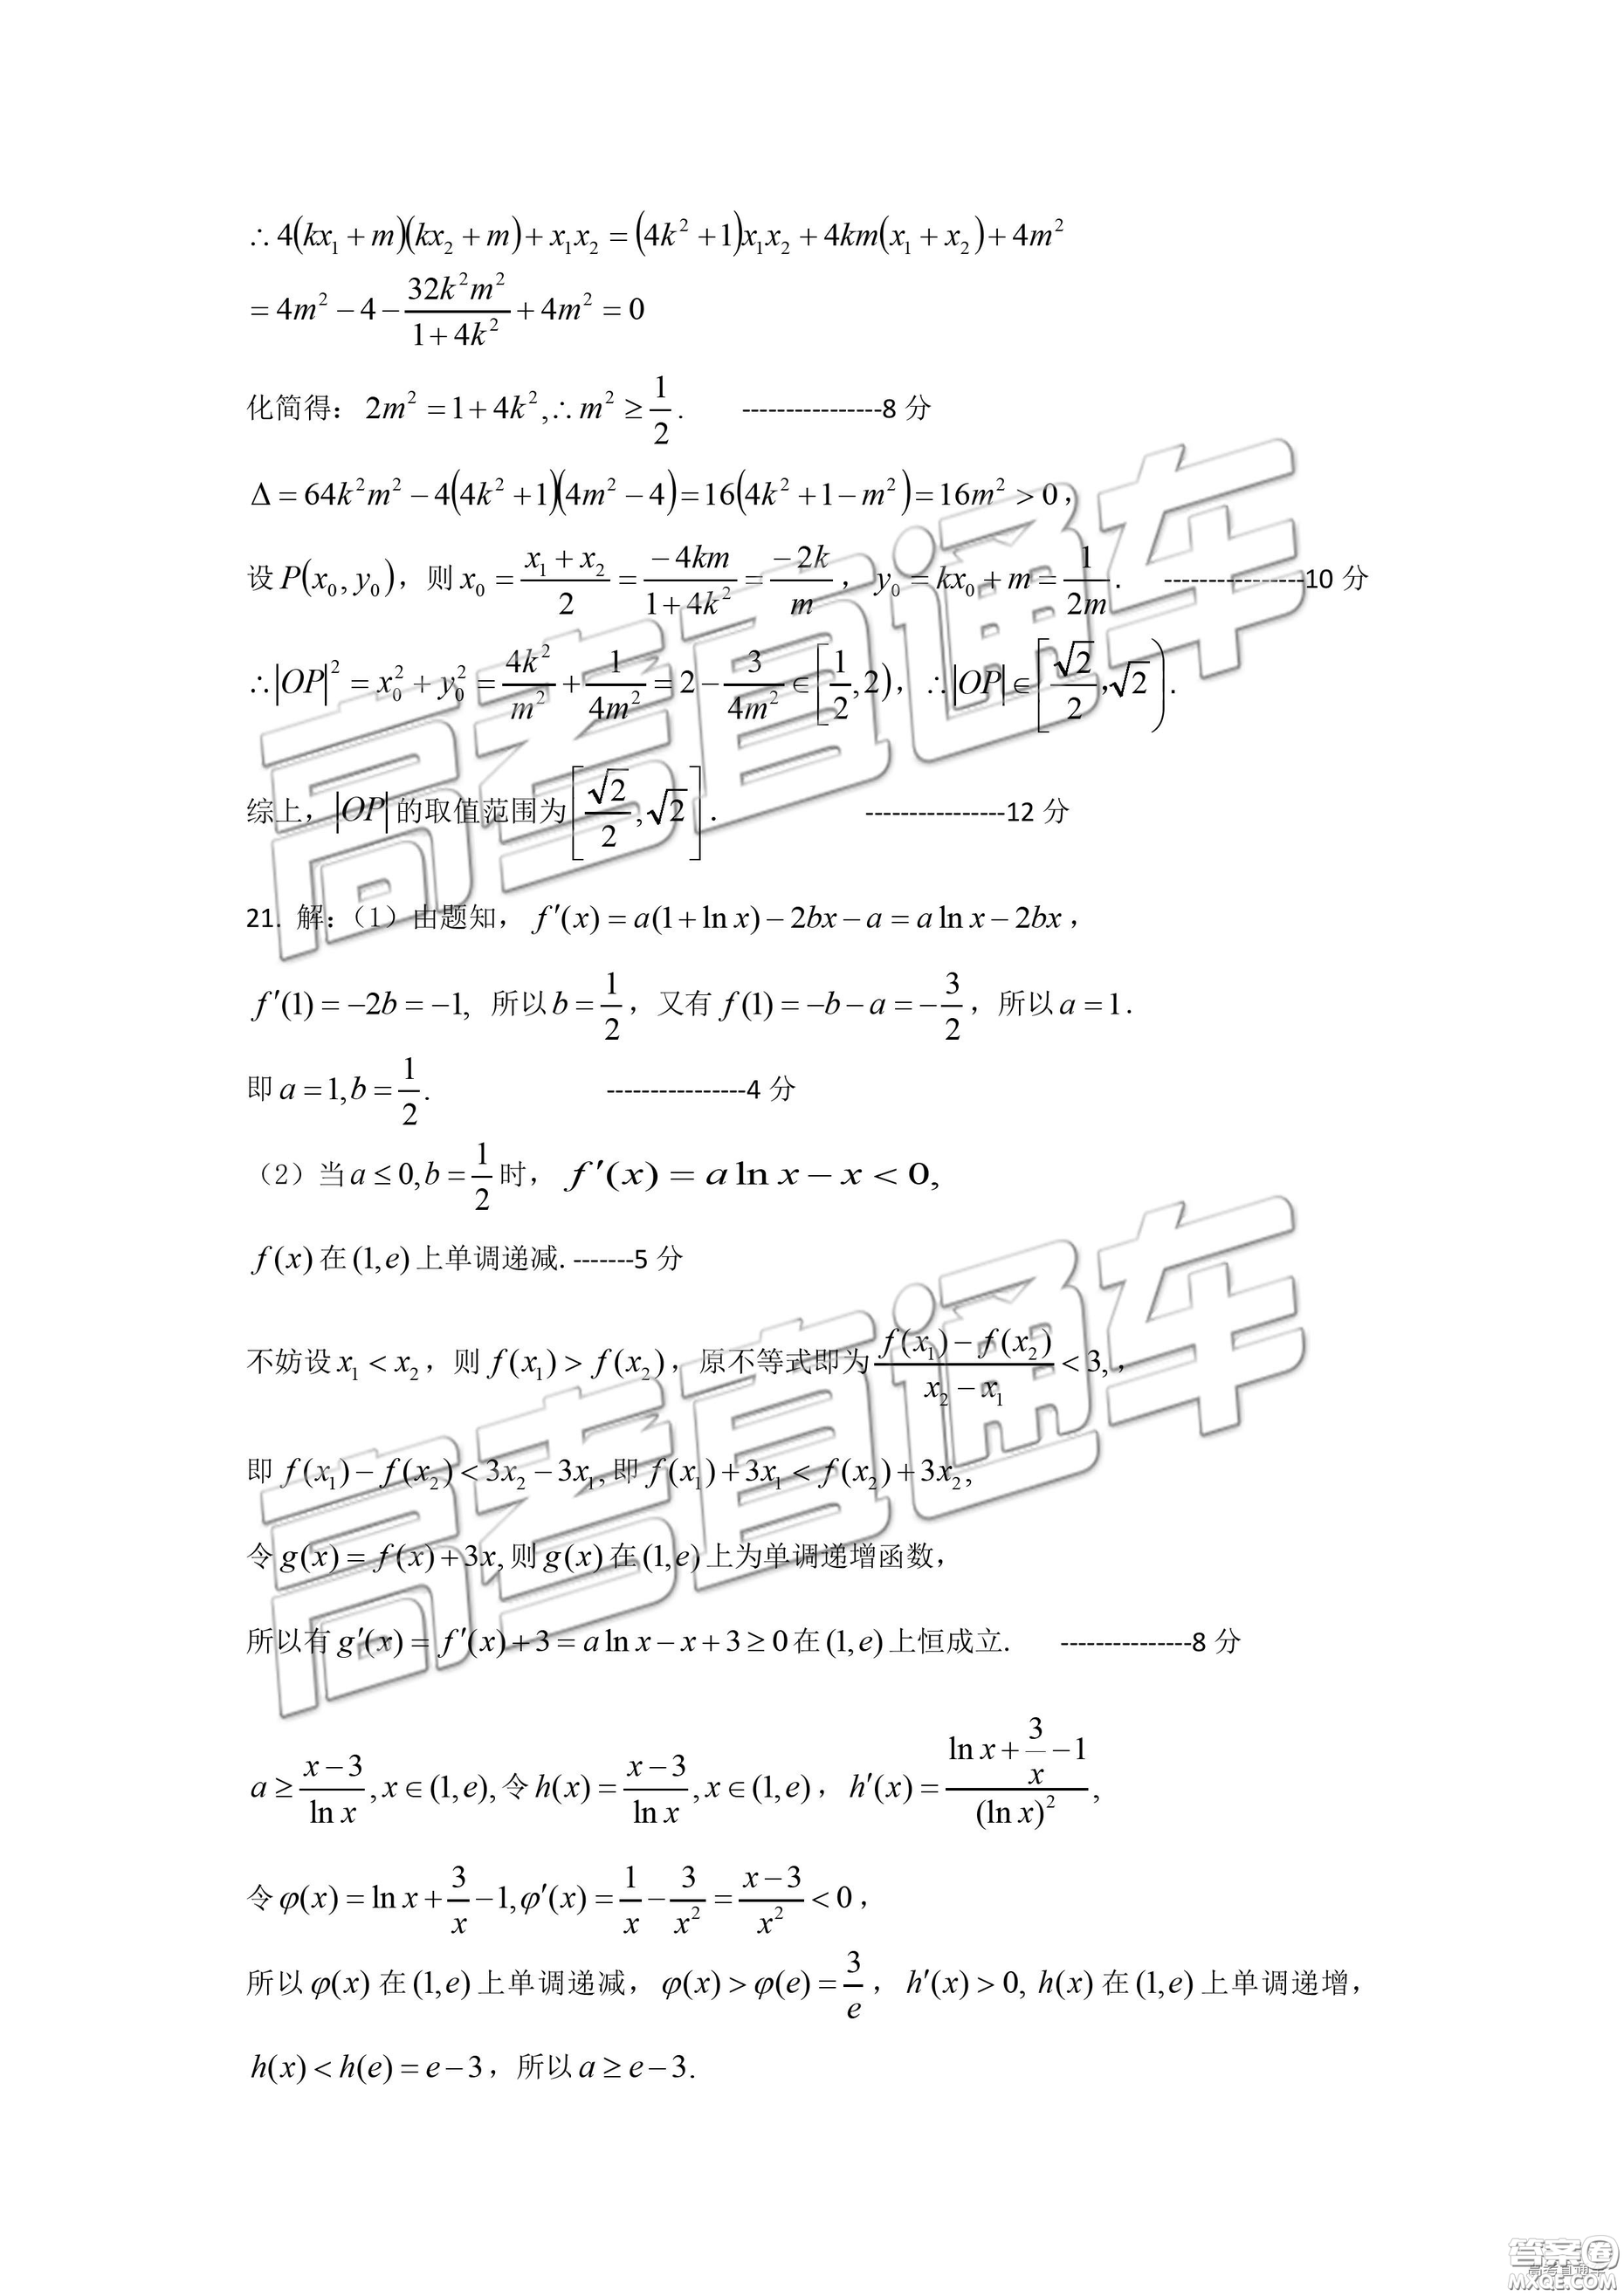 ∴4(kx₁+m)(kx₂+m)+x₁x₂=(4k²+1)x₁x₂+4km(x₁+x₂)+4m²
=4m²-4-\frac{32k²m²}{1+4k²}+4m²=0
化简得：2m²=1+4k²,∴m²≥\frac{1}{2}. ----------------8 分
Δ=64k²m²-4(4k²+1)(4m²-4)=16(4k²+1-m²)=16m²>0，
设P(x₀,y₀)，则x₀=\frac{x₁+x₂}{2}=\frac{-4km}{1+4k²}=\frac{-2k}{m}，y₀=kx₀+m=\frac{1}{2m}. ----------------10 分
∴|OP|²=x₀²+y₀²=\frac{4k²}{m²}+\frac{1}{4m²}=2-\frac{3}{4m²}∈[\frac{1}{2},2)，∴|OP|∈[\frac{√2}{2},√2).
综上，|OP|的取值范围为[\frac{√2}{2},√2]. ----------------12 分
21. 解：（1）由题知，f′(x)=a(1+ln x)-2bx-a=a ln x-2bx，
f′(1)=-2b=-1, 所以b=\frac{1}{2}，又有f(1)=-b-a=-\frac{3}{2}，所以a=1.
即a=1,b=\frac{1}{2}. ----------------4 分
（2）当a≤0,b=\frac{1}{2}时，f′(x)=a ln x-x<0,
f(x)在(1,e)上单调递减. -------5 分
不妨设x₁<x₂，则f(x₁)>f(x₂)，原不等式即为\frac{f(x₁)-f(x₂)}{x₂-x₁}<3,，
即f(x₁)-f(x₂)<3x₂-3x₁,即f(x₁)+3x₁<f(x₂)+3x₂,
令g(x)=f(x)+3x,则g(x)在(1,e)上为单调递增函数，
所以有g′(x)=f′(x)+3=a ln x-x+3≥0在(1,e)上恒成立. ---------------8 分
a≥\frac{x-3}{ln x},x∈(1,e),令h(x)=\frac{x-3}{ln x},x∈(1,e)，h′(x)=\frac{ln x+\frac{3}{x}-1}{(ln x)²},
令φ(x)=ln x+\frac{3}{x}-1,φ′(x)=\frac{1}{x}-\frac{3}{x²}=\frac{x-3}{x²}<0，
所以φ(x)在(1,e)上单调递减，φ(x)>φ(e)=\frac{3}{e}，h′(x)>0, h(x)在(1,e)上单调递增，
h(x)<h(e)=e-3，所以a≥e-3.
高考直通车
高考直通车
答案圈
高考直通车
MXQE.COM